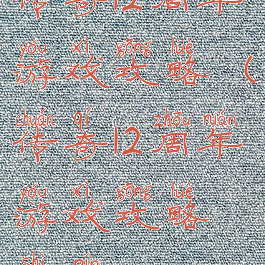 传奇12周年
yóu xì gōng lüè
游戏攻略（
chuán qí zhōu nián
传奇12周年
yóu xì gōng lüè
游戏攻略
shì pín